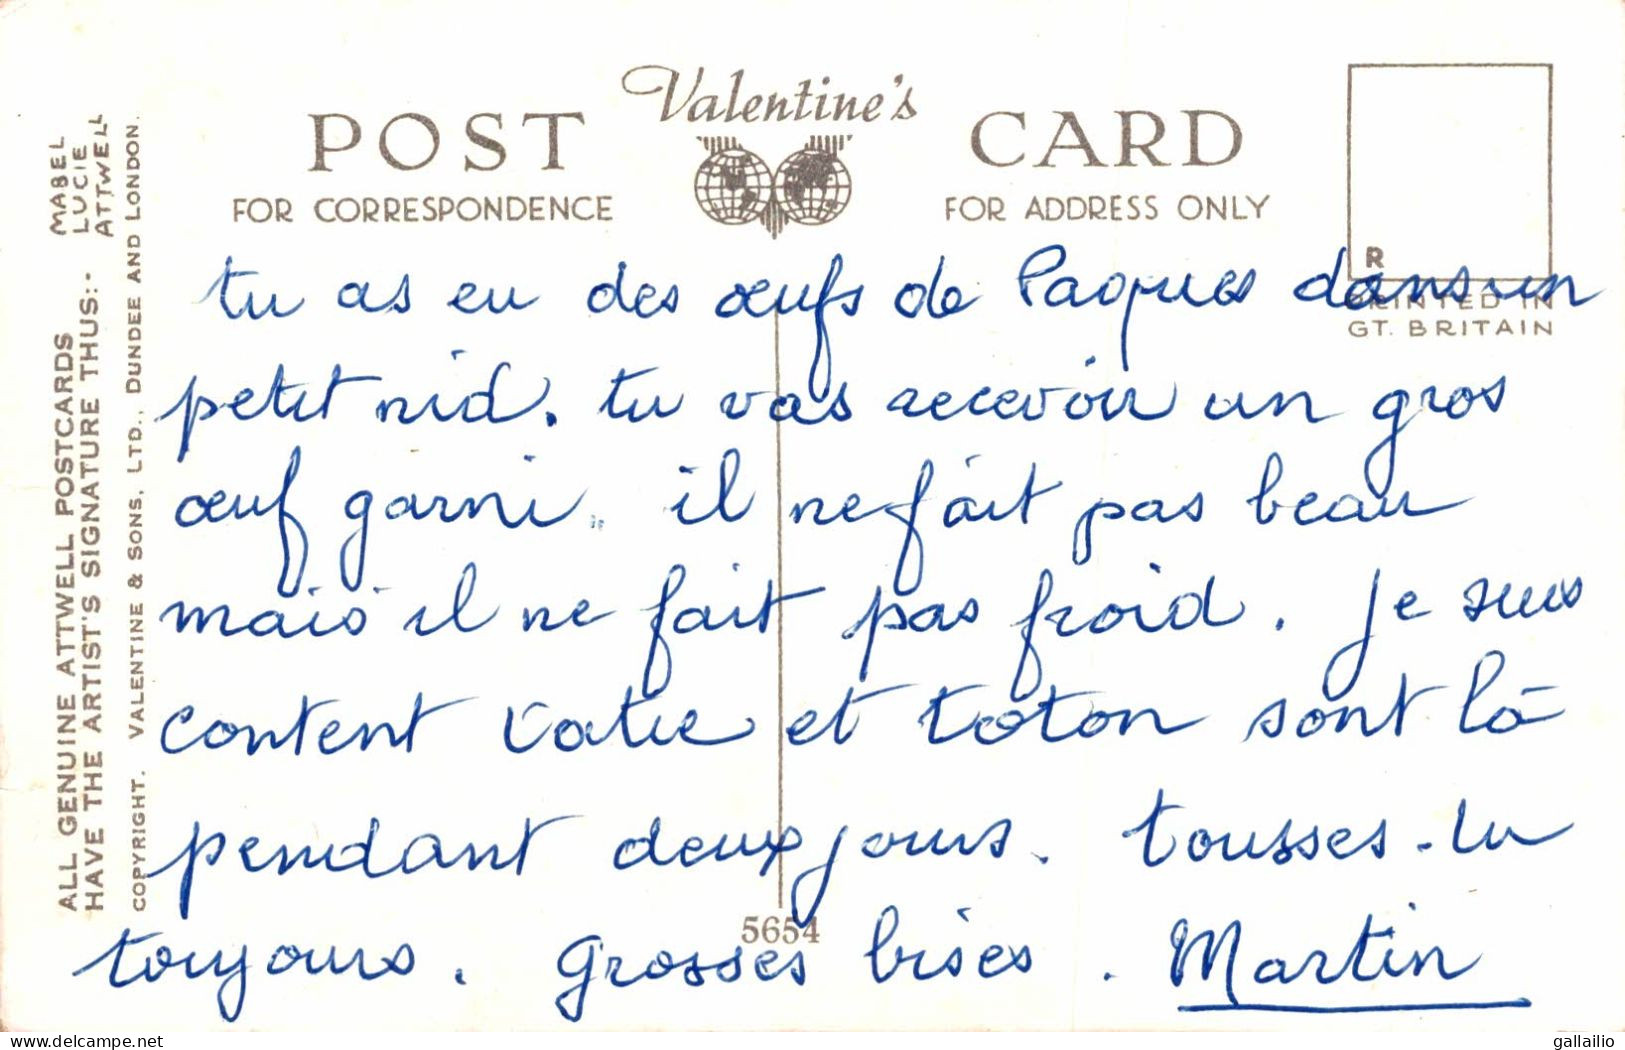 Valentine's
POST CARD
FOR CORRESPONDENCE
FOR ADDRESS ONLY
R
PRINTED IN
GT. BRITAIN
ALL GENUINE ATTWELL POSTCARDS
HAVE THE ARTIST'S SIGNATURE THUS:-
MABEL
LUCIE
ATTWELL
COPYRIGHT. VALENTINE & SONS, LTD., DUNDEE AND LONDON.
tu as eu des œufs de Paques dans un
petit nid. tu vas recevoir un gros
œuf garni. il ne fait pas beau
mais il ne fait pas froid. Je suis
content et toton sont là
pendant deux jours. tousses-tu
toujours. Grosses bises. Martin
5654
gallailio